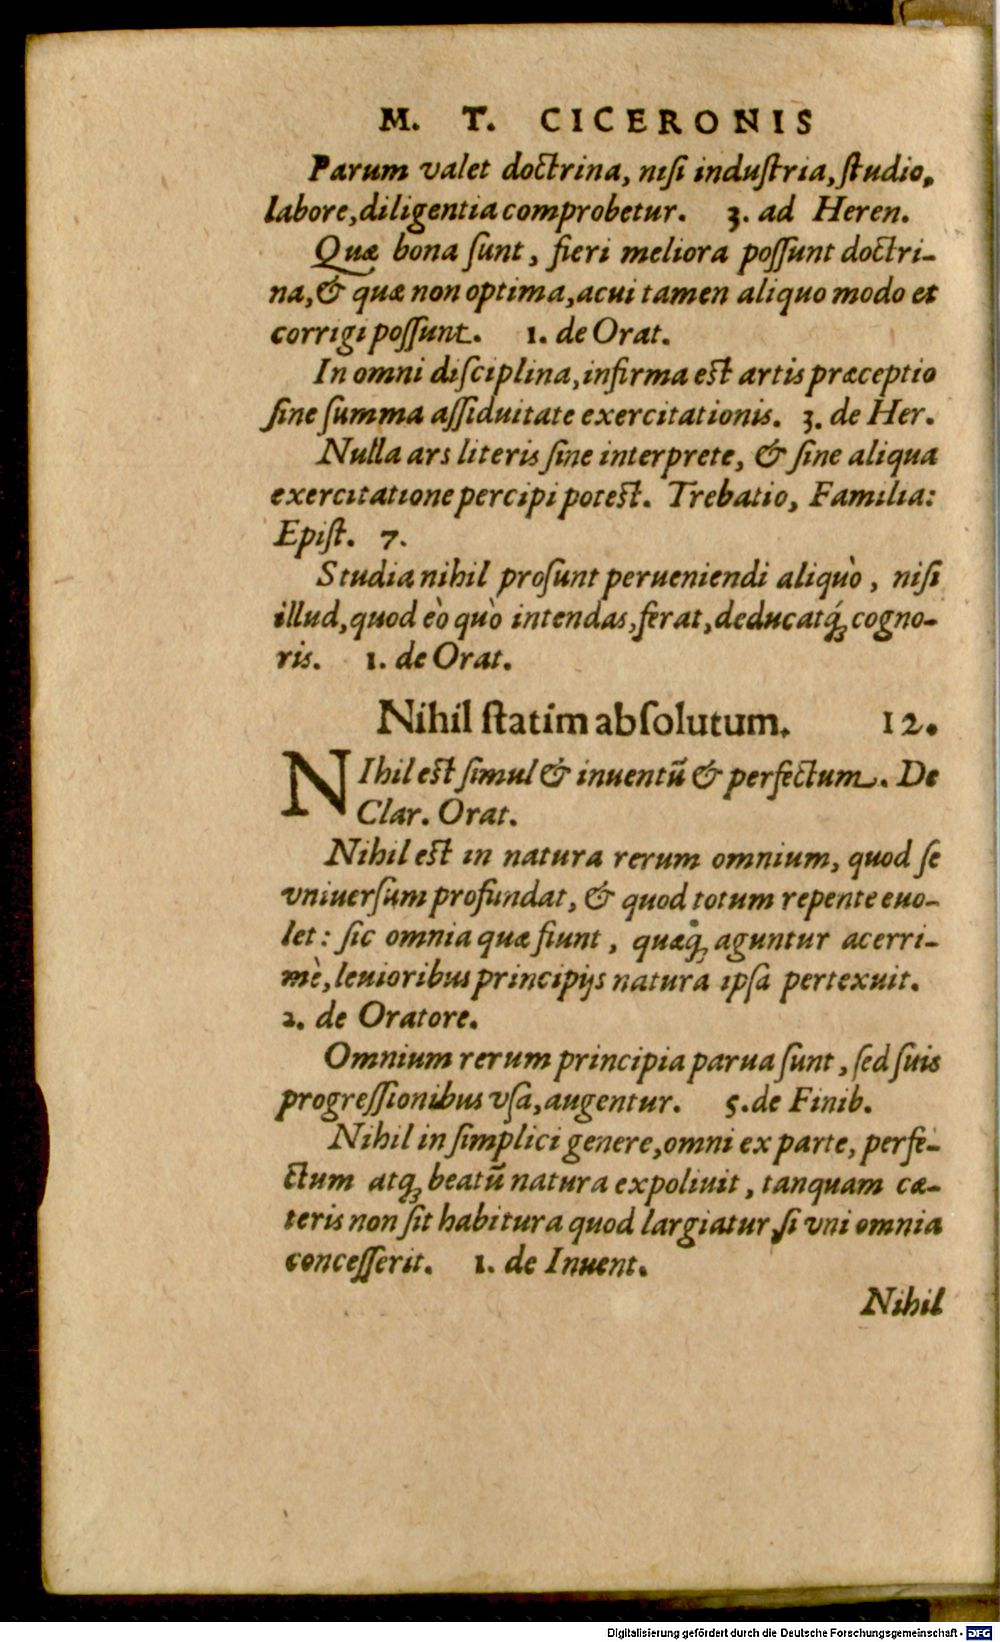 M. T. CICERONIS
Parum valet doctrina, nisi induſtria, ſtudio,
labore, diligentia comprobetur. 3. ad Heren.
Quæ bona ſunt, fieri meliora poſſunt doctri-
na, & quæ non optima, acui tamen aliquo modo et
corrigi poſſunt. 1. de Orat.
In omni diſciplina, infirma eſt artis præceptio
ſine ſumma aſſiduitate exercitationis. 3. de Her.
Nulla ars literis ſine interprete, & ſine aliqua
exercitatione percipi poteſt. Trebatio, Familia:
Epiſt. 7.
Studia nihil proſunt perueniendi aliquò, niſi
illud, quod eò quò intendas, ferat, deducatq́; cogno-
ris. 1. de Orat.
Nihil ſtatim abſolutum. 12.
NIhil eſt ſimul & inuentū & perfectum. De
Clar. Orat.
Nihil eſt in natura rerum omnium, quod ſe
vniuerſum profundat, & quod totum repente euo-
let: ſic omnia quæ fiunt, quæq; aguntur acerri-
mè, leuioribus principijs natura ipſa pertexuit.
2. de Oratore.
Omnium rerum principia parua ſunt, ſed ſuis
progreſſionibus vſa, augentur. 5. de Finib.
Nihil in ſimplici genere, omni ex parte, perfe-
ctum atq; beatū natura expoliuit, tanquam cæ-
teris non ſit habitura quod largiatur, ſi vni omnia
conceſſerit. 1. de Inuent.
Nihil
Digitalisierung gefördert durch die Deutsche Forschungsgemeinschaft - DFG